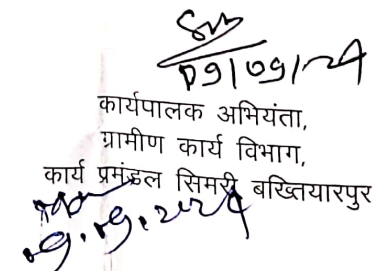 09/09/24
कार्यपालक अभियंता,
ग्रामीण कार्य विभाग,
कार्य प्रमंडल सिमरी बख्तियारपुर
09.09.2024